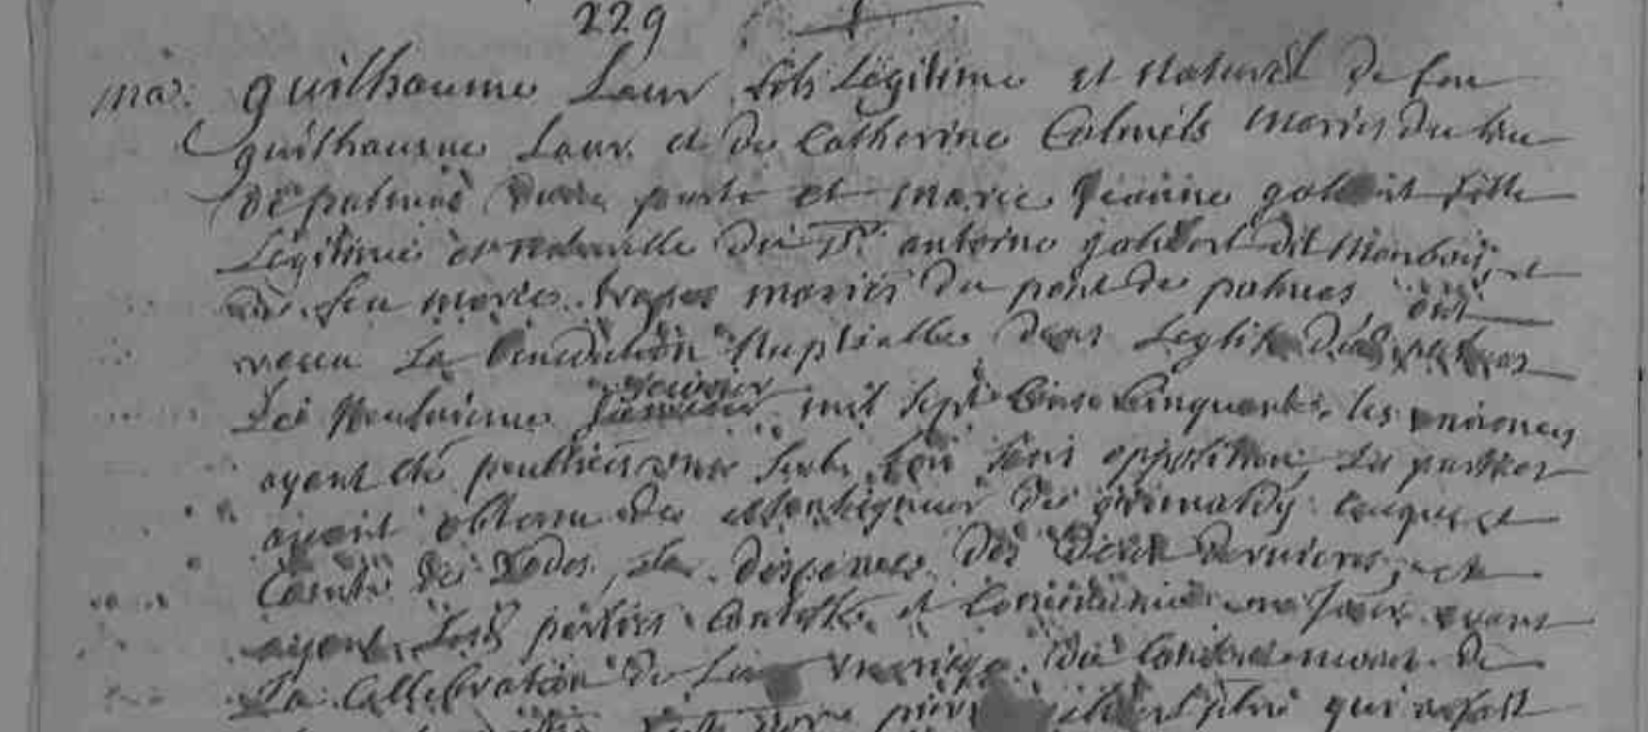 229
ma. guilhaume Laur fils Legitime et Naturel de feu
guilhaume Laur et de Catherine Calmels mariés du lieu
de palmas d'une parte et marie Jeanne galibert fille
Legitime et naturelle du Sr. antoine galibert dit
de feu marie mariés du pont de palmas, ont
receu La benediction Nuptialle dans Leglise de palmas
Le Neufvieme janvier mil sept cens cinquante, les annonces
ayant été peubliées une seule fois sans opposition, les parties
ayant obtenu de Monseigneur de grimaldy eveque et
Comte de Rodes, la dispense des deux dernieres, et
ayant Lesd parties confessé et communié un jour avant
La Cellebration de Leur mariage. du consentement de
qui